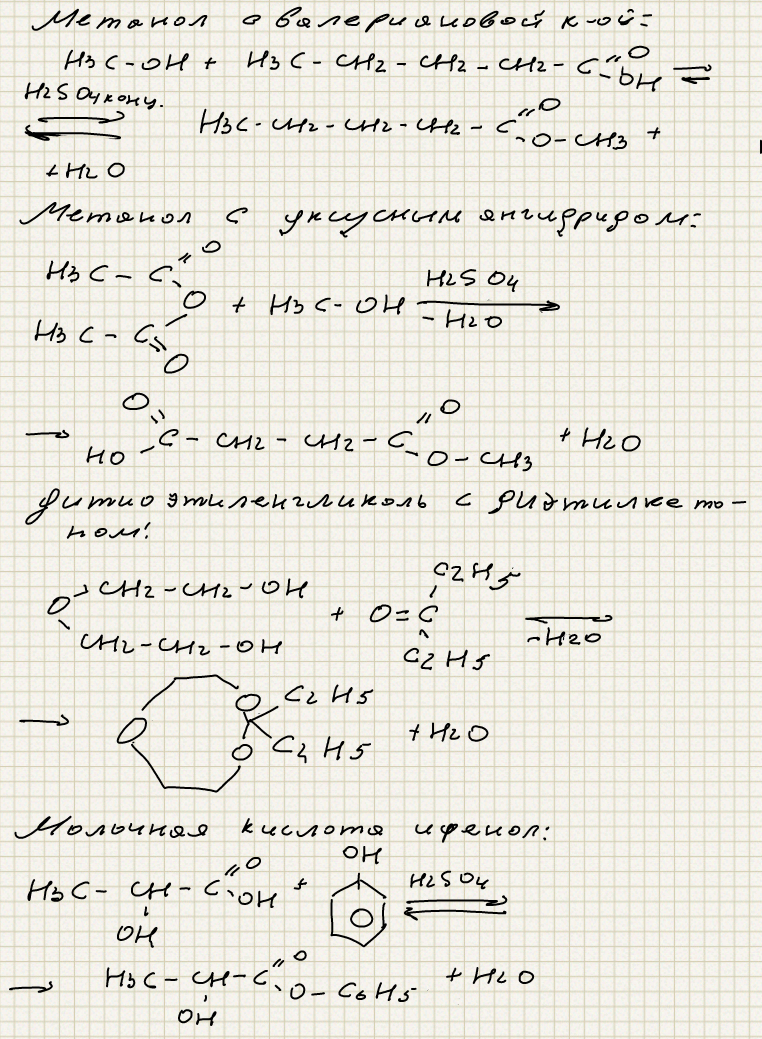 Метанол с валериановой к-ой:
H3C-OH + H3C-CH2-CH2-CH2-C=O-OH ⇌
H2SO4конц. ⇌ H3C-CH2-CH2-CH2-C=O-O-CH3 +
+H2O
Метанол с уксусным ангидридом:
H3C-C=O
O + H3C-OH H2SO4 →
-H2O
H3C-C=O
→ O=C-CH2-CH2-C=O +H2O
HO O-CH3
дитиоэтиленгликоль с диэтилкето-
ном:
C2H5
O CH2-CH2-OH + O=C ⇌
CH2-CH2-OH -H2O
C2H5
→ O O C2H5 +H2O
O C2H5
Молочная кислота и фенол:
OH
H3C-CH-C=O-OH + H2SO4 ⇌
OH
→ H3C-CH-C=O-O-C6H5 +H2O
OH